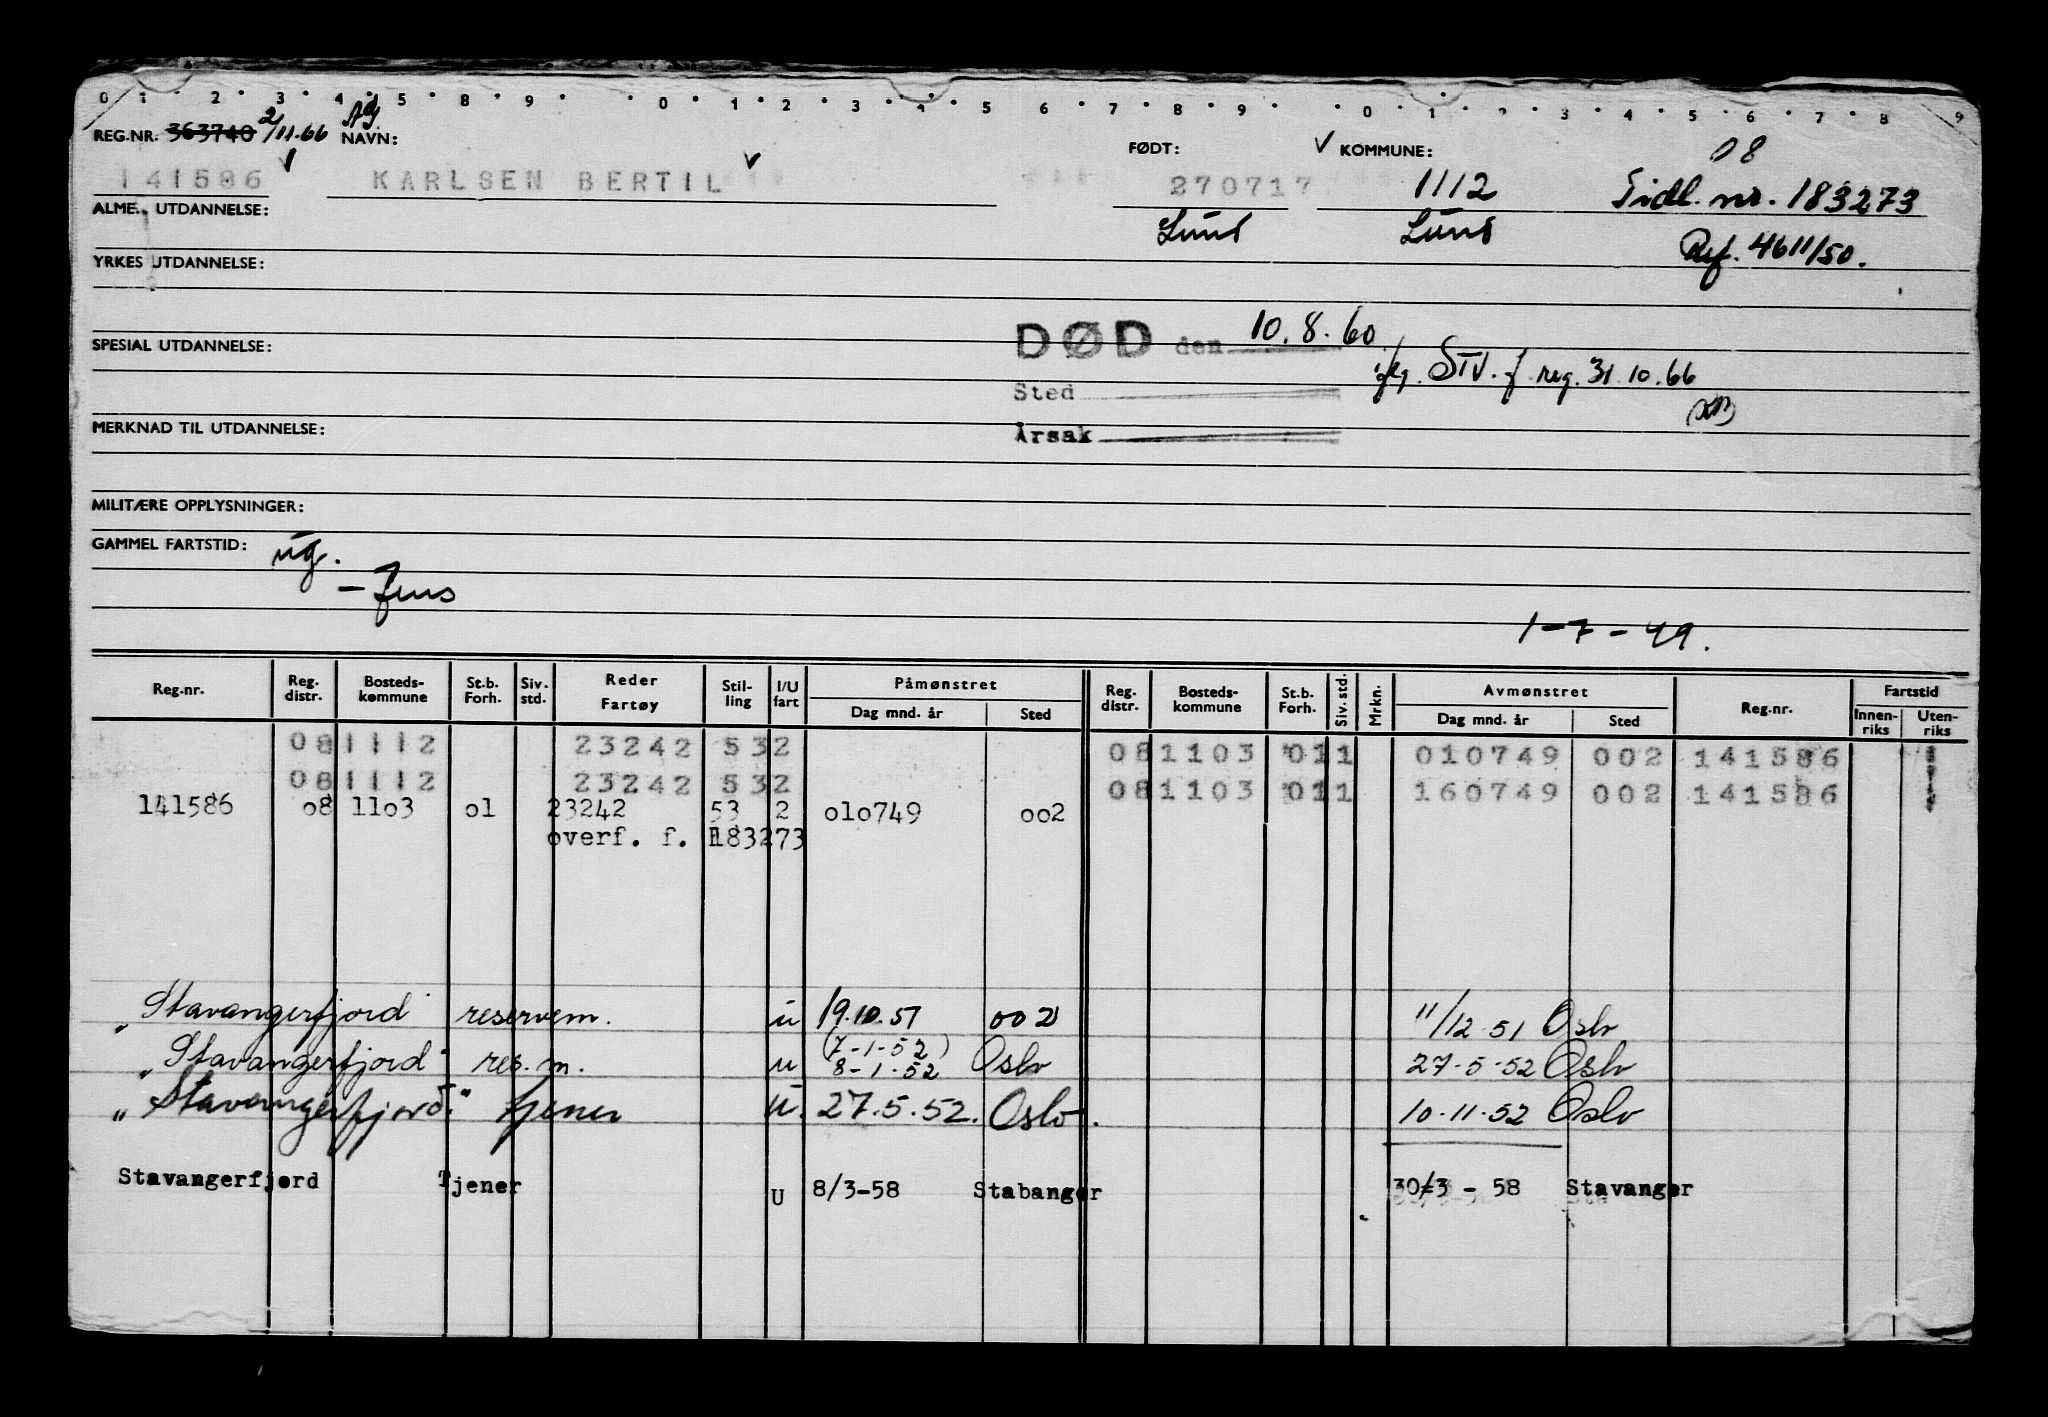 0 1 2 3 4 5 8 9 0 1 2 3 4 5 6 7 8 9 0 1 2 3 4 5 6 7 8 9
REG.NR. 363740 2/11.66 NAVN: FØDT: KOMMUNE: 08
141586 KARLSEN BERTIL 270717 1112 Tidl. nr. 183273
ALME. UTDANNELSE: Lund Lund
YRKES UTDANNELSE: Ref. 4611/50.
DØD den 10.8.60
SPESIAL UTDANNELSE: iflg. STV. f. reg. 31.10.66
Sted
MERKNAD TIL UTDANNELSE: Årsak
MILITÆRE OPPLYSNINGER:
GAMMEL FARTSTID: ug.
1-7-49.
Reg.nr. Reg. distr. Bosteds- kommune St.b. Forh. Siv. std. Reder Fartøy Stil- ling I/U fart Påmønstret Dag mnd. år Sted Reg. distr. Bosteds- kommune St.b. Forh. Siv. std. Mrkn. Avmønstret Dag mnd. år Sted Reg.nr. Fartstid Innen- riks Uten- riks
081112 23242 532 081103 011 010749 002 141586
081112 23242 532 081103 011 160749 002 141586
141586 08 1103 01 23242 53 2 010749 002
overf. f. 183273
"Stavangerfjord" reservem. u 19.10.51 002 11/12 51 Oslo
"Stavangerfjord" res.m. u (7-1-52) 8-1-52 Oslo 27-5-52 Oslo
"Stavangerfjord." tjener u. 27.5.52. Oslo. 10-11-52 Oslo
Stavangerfjord Tjener U 8/3-58 Stabanger 30/3 - 58 Stavanger